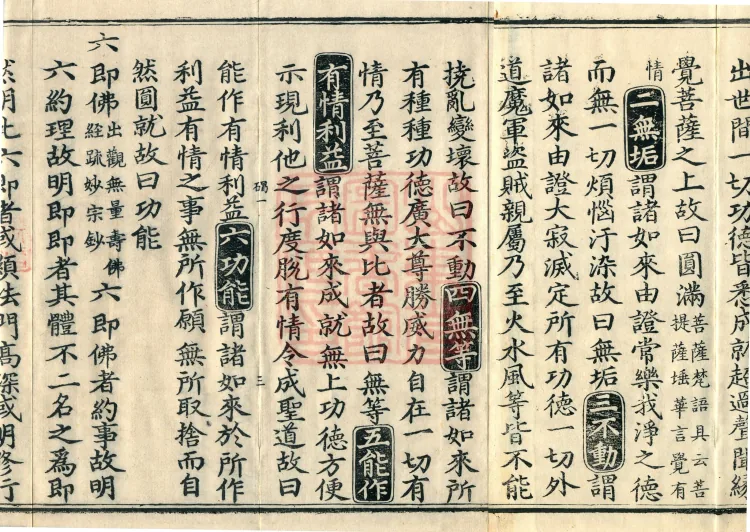 出世間一切功德皆悉成就超過聲聞緣
覺菩薩之上故曰圓滿菩薩梵語具云菩提薩埵華言覺有
情 二無垢謂諸如來由證常樂我淨之德
而無一切煩惱汙染故曰無垢三不動謂
諸如來由證大寂滅定所有功德一切外
道魔軍盜賊親屬乃至火水風等皆不能
撓亂變壞故曰不動四無等謂諸如來所
有種種功德廣大尊勝威力自在一切有
情乃至菩薩無與比者故曰無等五能作
有情利益謂諸如來成就無上功德方便
示現利他之行度脫有情令成聖道故曰
三
能作有情利益六功能謂諸如來於所作
利益有情之事無所作願無所取捨而自
然圓就故曰功能
六即佛出觀無量壽佛經疏妙宗鈔六即佛者約事故明
六約理故明即即者其體不二名之為即
然明此六即者或顯法門高深或明修行